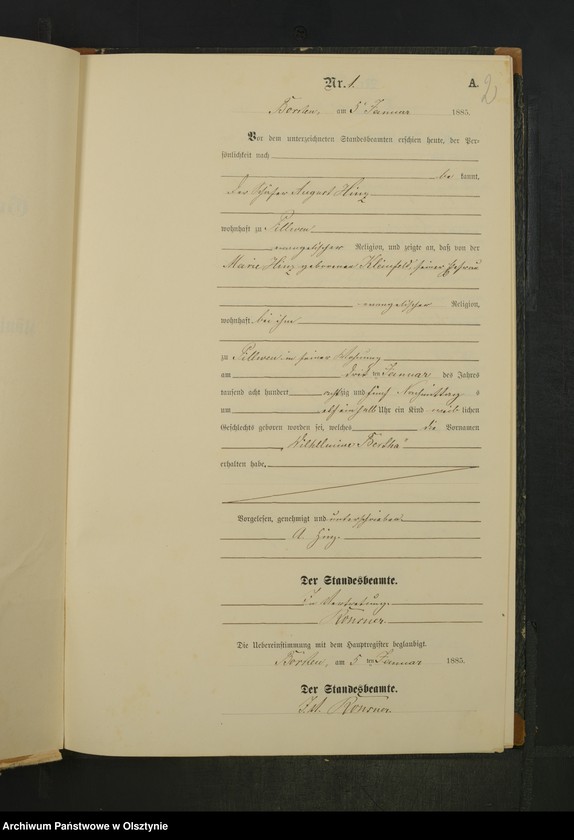 Nr. 1.
A.
2
am 5 Januar 1885.
Vor dem unterzeichneten Standesbeamten erschien heute, der Per-
sönlichkeit nach
be kannt,
der Schäfer August Hinz
wohnhaft zu Tillwen
evangelischer Religion, und zeigte an, daß von der
Marie Hinz geborenen Kleinfeld, seiner Ehefrau
evangelischer Religion,
wohnhaft bei ihm
zu Tillwen in seiner Wohnung
am drei ten Januar des Jahres
tausend acht hundert achtzig und fünf Nachmittag s
um elf ein halb Uhr ein Kind weib lichen
Geschlechts geboren worden sei, welches die Vornamen
Wilhelmine Bertha
erhalten habe.
Vorgelesen, genehmigt und unterschrieben
A. Hinz.
Der Standesbeamte.
In Vertretung.
Der Uebereinstimmung mit dem Hauptregister beglaubigt.
am 5 ten Januar 1885.
Der Standesbeamte.
Archiwum Państwowe w Olsztynie